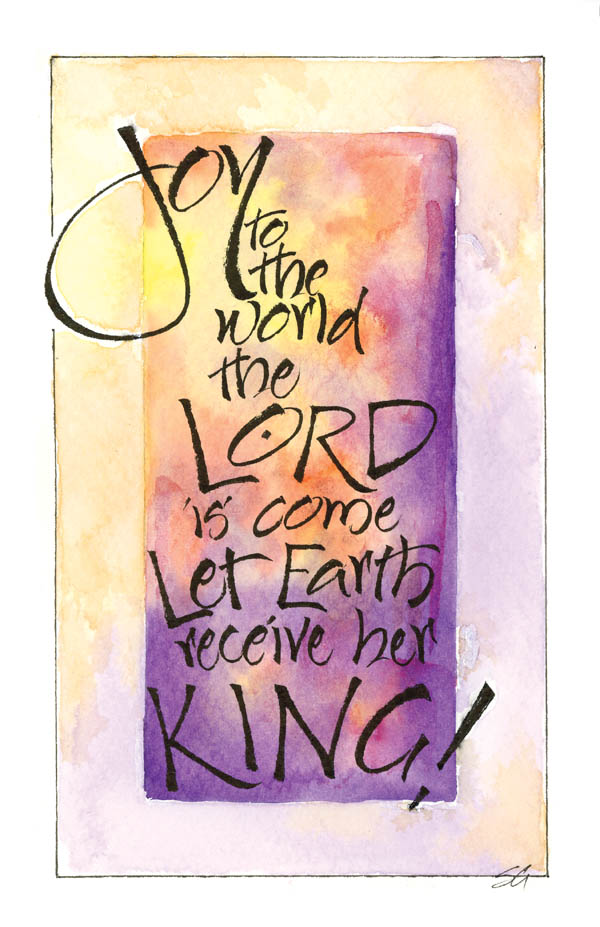 Joy
to
the
world
the
LORD
is come
Let Earth
receive her
KING!
SG